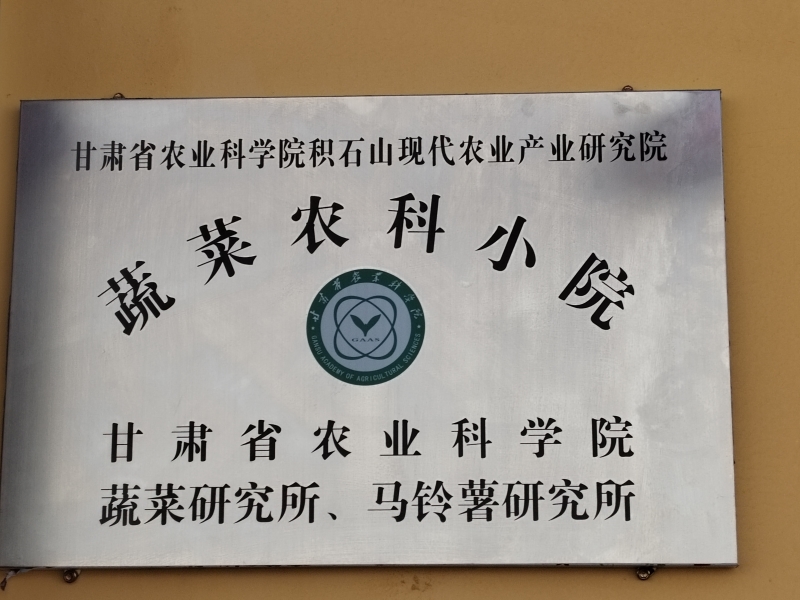 甘肃省农业科学院积石山现代农业产业研究院
蔬菜农科小院
甘肃省农业科学院
GANSU ACADEMY OF AGRICULTURAL SCIENCES
GAAS
甘肃省农业科学院
蔬菜研究所、马铃薯研究所